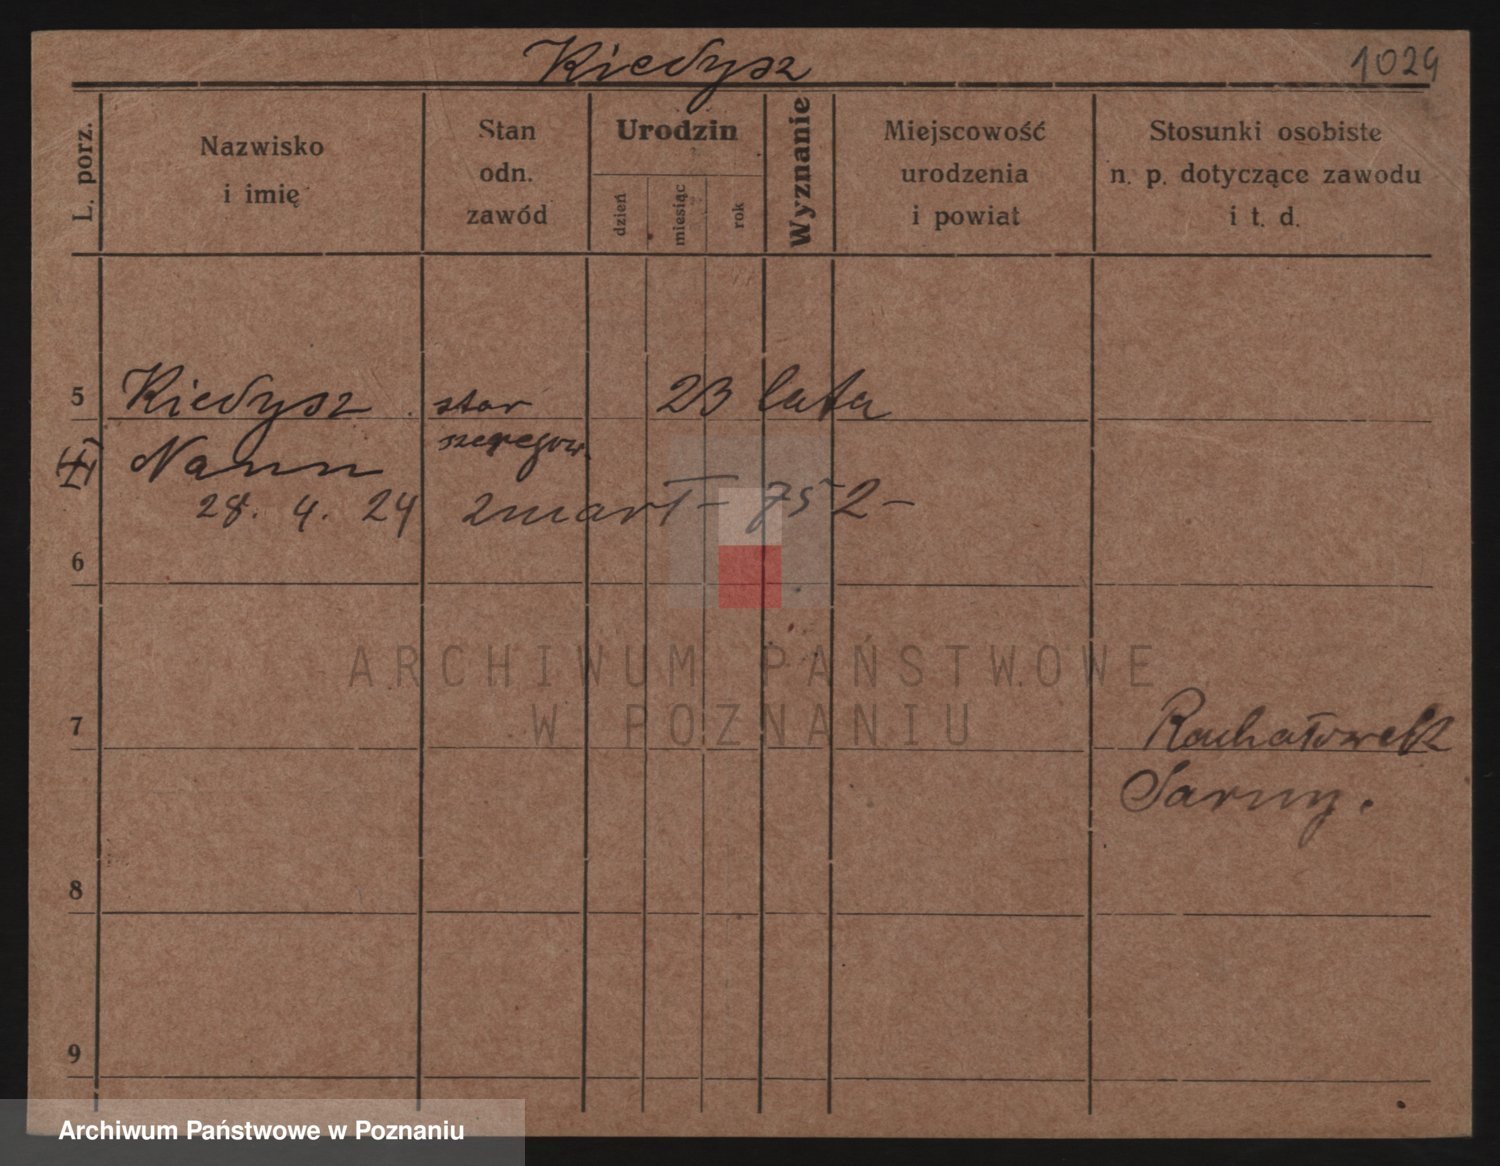 Kiedysz
1024
L. porz.
Nazwisko
i imię
Stan
odn.
zawód
Urodzin
dzień
miesiąc
rok
Wyznanie
Miejscowość
urodzenia
i powiat
Stosunki osobiste
n. p. dotyczące zawodu
i t. d.
5 Kiedysz star 23 lata
szeregow.
28. 4. 24 zmarł – 752 –
6
7
Sarny.
8
9
ARCHIWUM PAŃSTWOWE
W POZNANIU
Archiwum Państwowe w Poznaniu